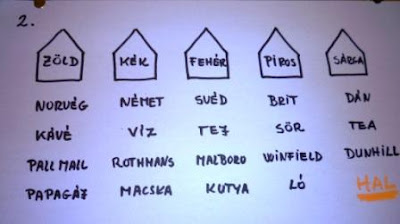 2.
ZÖLD KÉK FEHÉR PIROS SÁRGA
NORVÉG NÉMET SVÉD BRIT DÁN
KÁVÉ VÍZ TEJ SÖR TEA
PALL MALL ROTHMANS MALBORO WINFIELD DUNHILL
PAPAGÁJ MACSKA KUTYA LÓ HAL